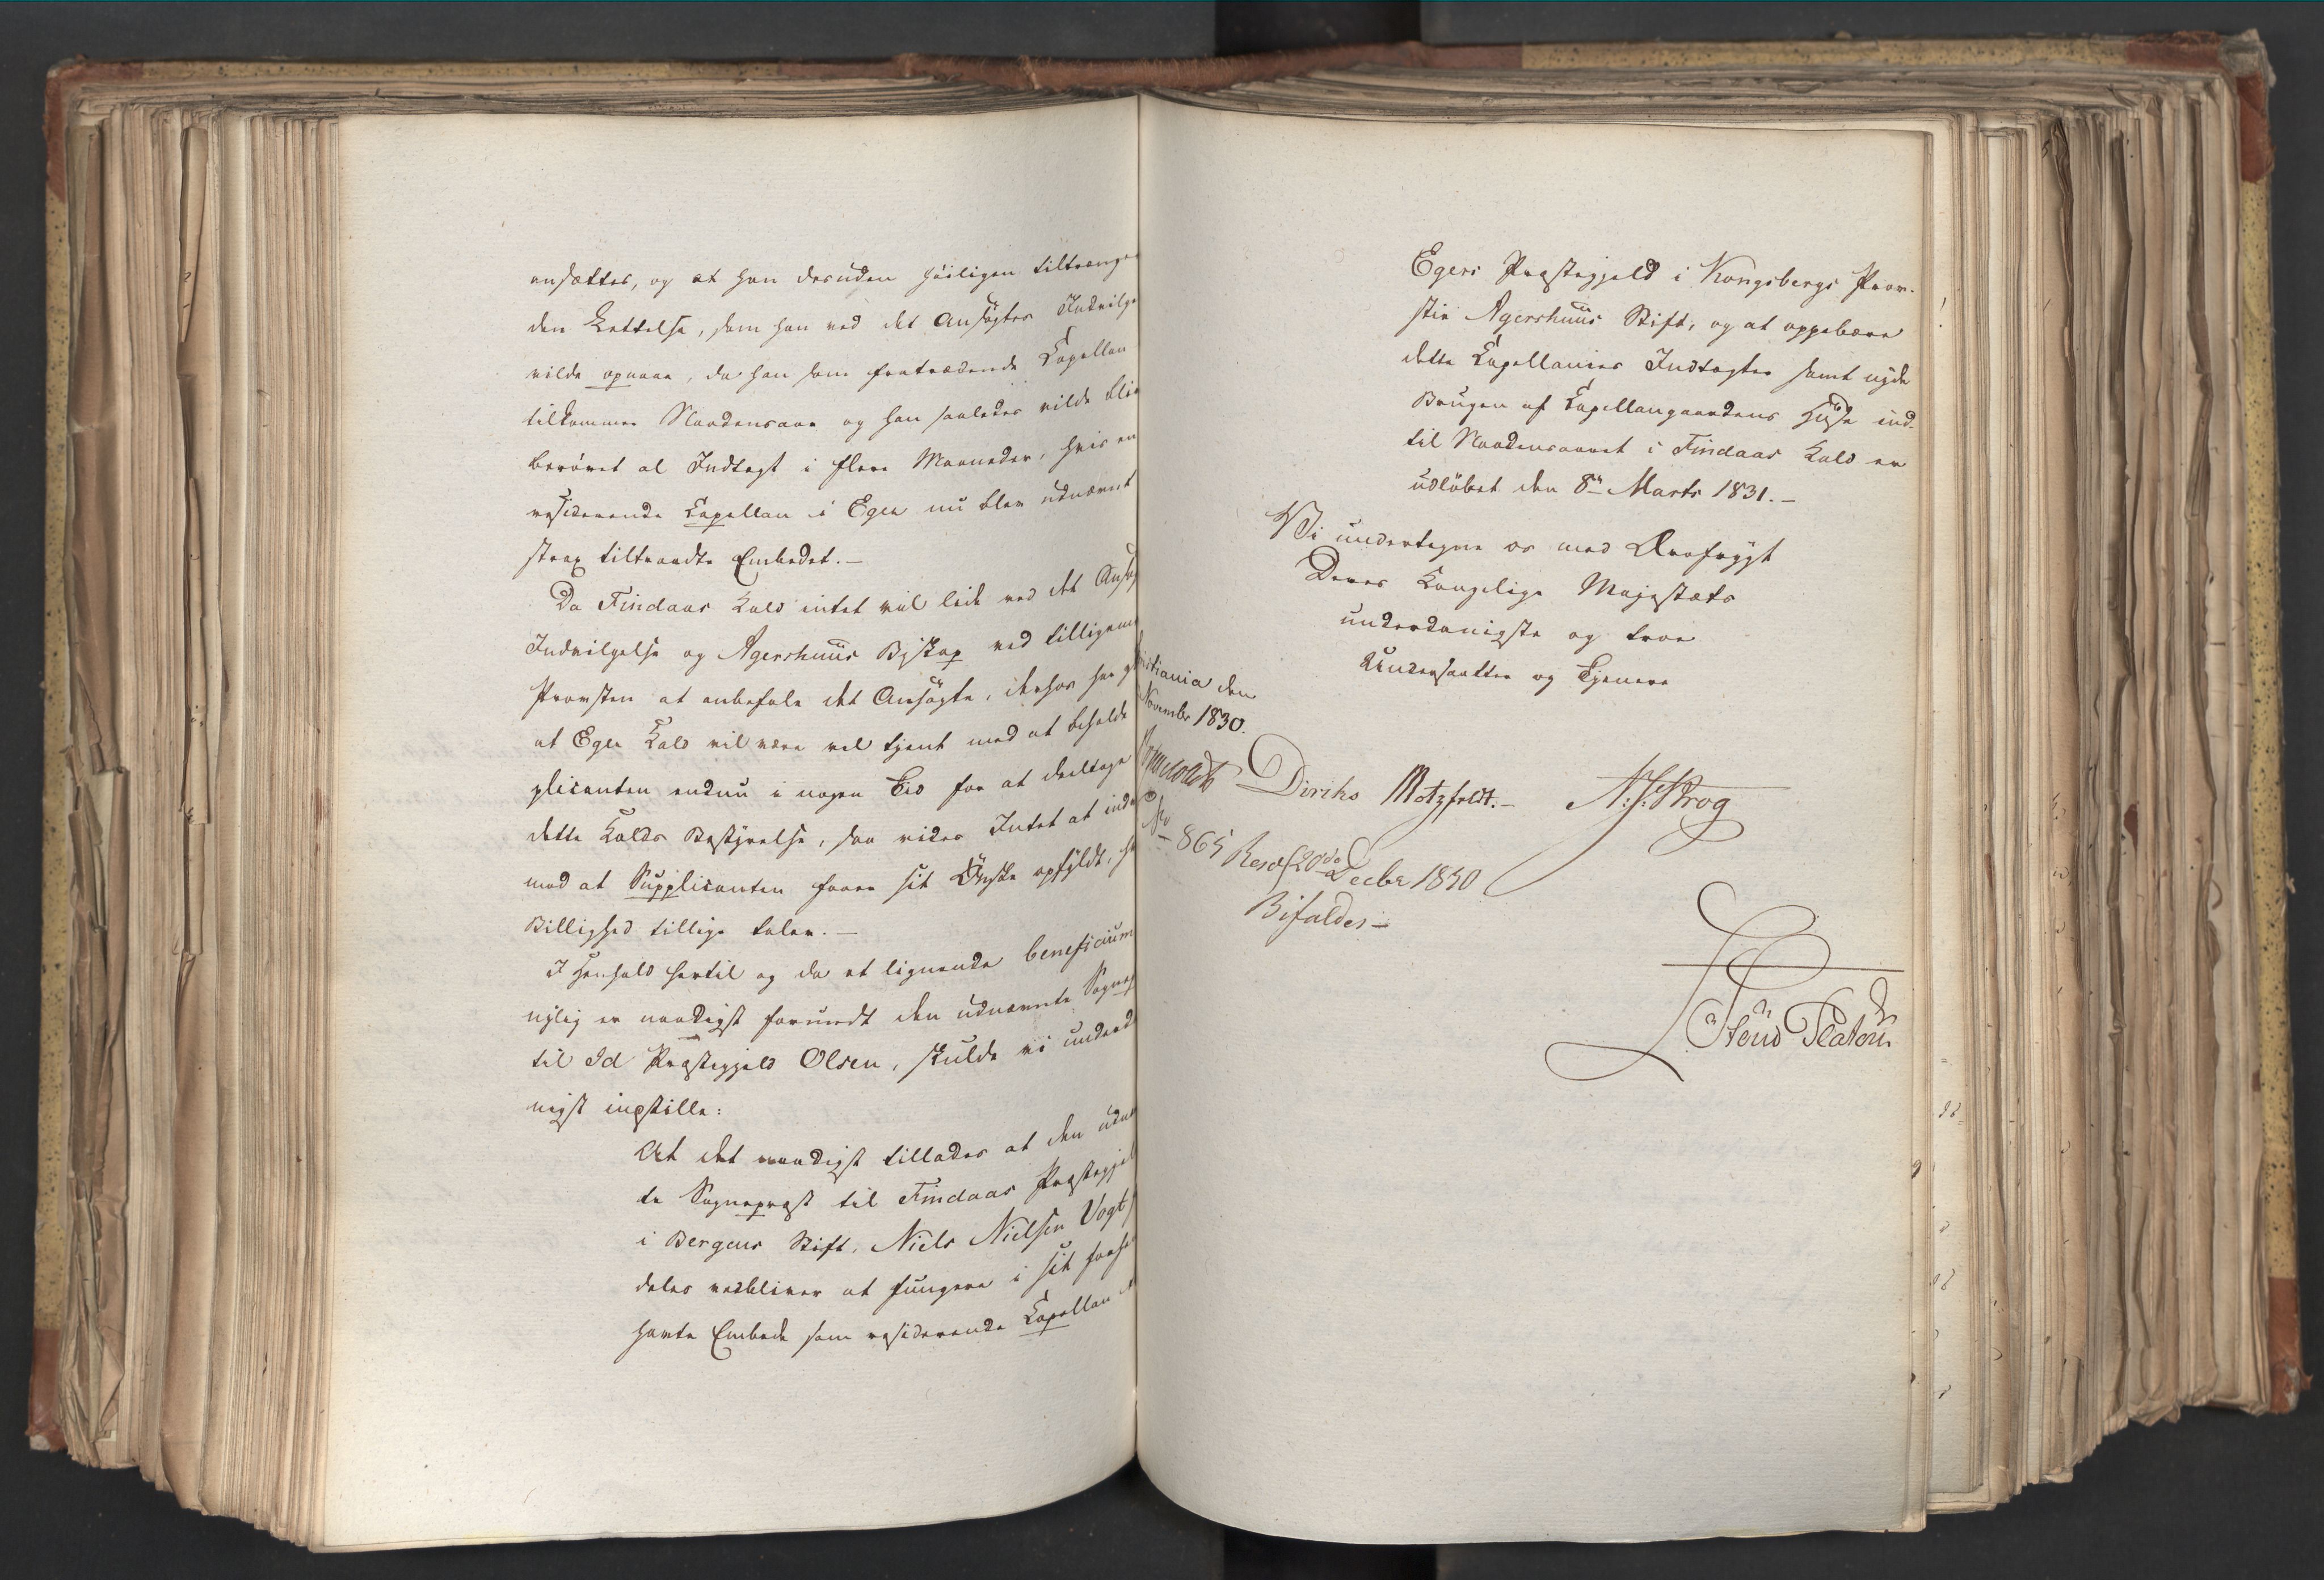 ansættes, og at han desuden höiligen tiltrænge
den Lettelse, som han ved det Ansøgtes Indvilge
vilde opnaae, da han som fratrædende Capellan
tilkommer Naadensaar og han saaledes vilde bliv
berövet al Indtægt i flere Maaneder, hvis en
residerende Capellan i Eger nu blev udnævnt
strax tiltraadte Embedet.—
Da Findaas Kald intet vil lide ved det Ansøg
Indvilgelse og Agershuus Biskop ved tilligem
Provsten at anbefale det Ansøgte, derhos har
at Eger Kald vil være vel tjent med at beholde
plicanten endnu i nogen Tid for at deeltage
dette Kalds Bestyrelse, saa vides Intet at ind
mod at Supplicanten faaer sit Ønske opfyldt,
Billighed tillige taler.—
I Henhold hertil og da et lignende beneficium
nylig er naadigst forundt den udnævnte Sognep
til Id Præstegjeld Olsen, skulde vi underd
nigst indstille:
At det naadigst tillades at den udn
te Sognepræst til Findaas Præstegjel
i Bergens Stift, Niels Nielsen Vogt
deles vedbliver at fungere i sit forhe
havte Embede som residerende Capellan
Egers Præstegjeld i Kongsbergs Prov-
stie Agershuus Stift, og at oppebære
dette Capellanies Indtægter samt nyde
Brugen af Capellangaardens Huse ind-
til Naadensaaret i Findaas Kald er
udløbet den 8de Marts 1831.—
Vi undertegne os med Ærefrygt
Deres Kongelige Majestæts
underdanigste og troe
Undersaatter og Tjenere
istiania den
November 1830.
Diriks Motzfeldt.— N: J: Krog
No 865 Resol 20de Decbr 1830
Bifaldes—